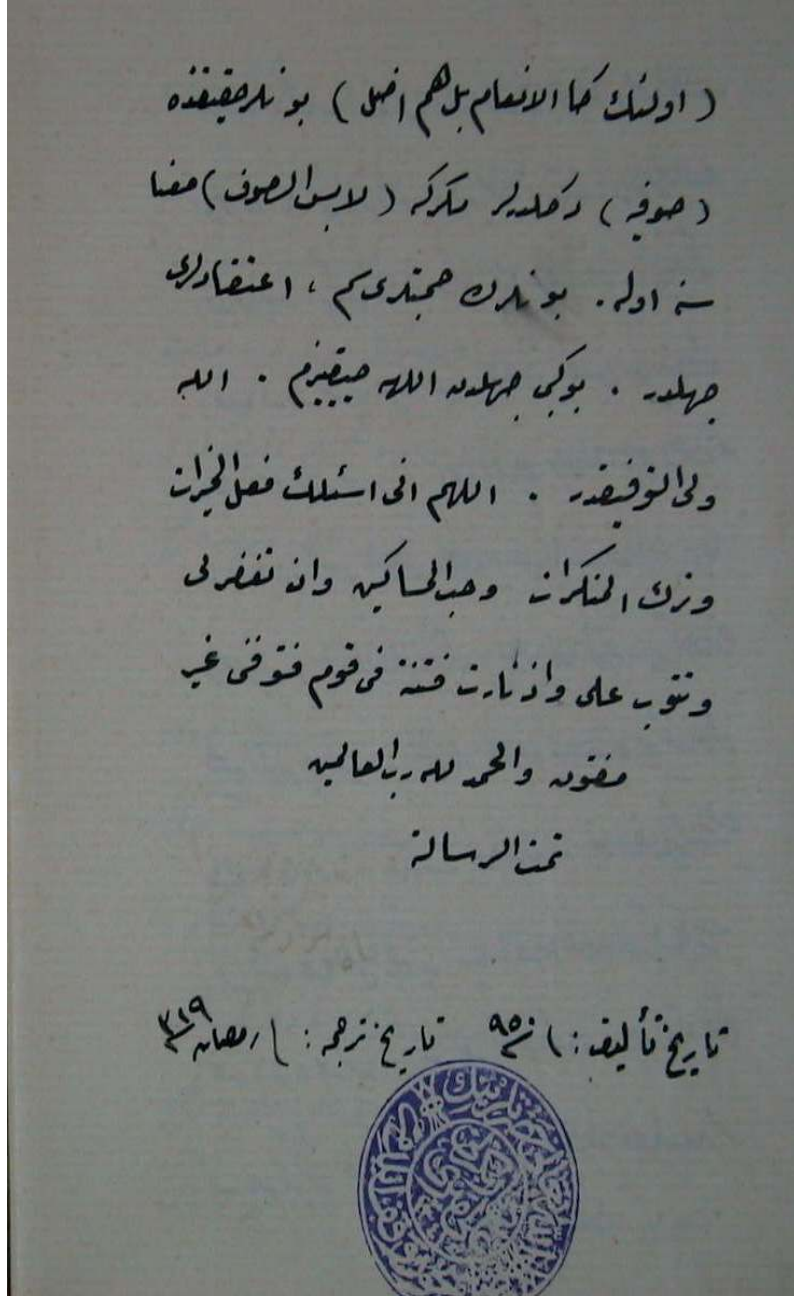 ( اولئك كا الانعام بل هم اضل ) بونلر حقيقتده
( صوفيه ) دكلدرلر مكركه ( لابس الصوف ) معنا
سنه اوله . بونلرك صحبتلرى سم ، اعتقادلرى
جهلدر . بوكبى جهلدن اللهه صيغينيرم . الله
ولى التوفيقدر . اللهم انى اسئلك فعل الخيرات
وترك المنكرات وحب المساكين وان تغفر لى
وتتوب على واذا ارت فتنة فى قوم فتوفنى غير
مفتون والحمد لله رب العالمين
تمت الرسالة
تاريخ تأليف : ٩٥٠ تاريخ ترجمه : رمضان ٣١٩